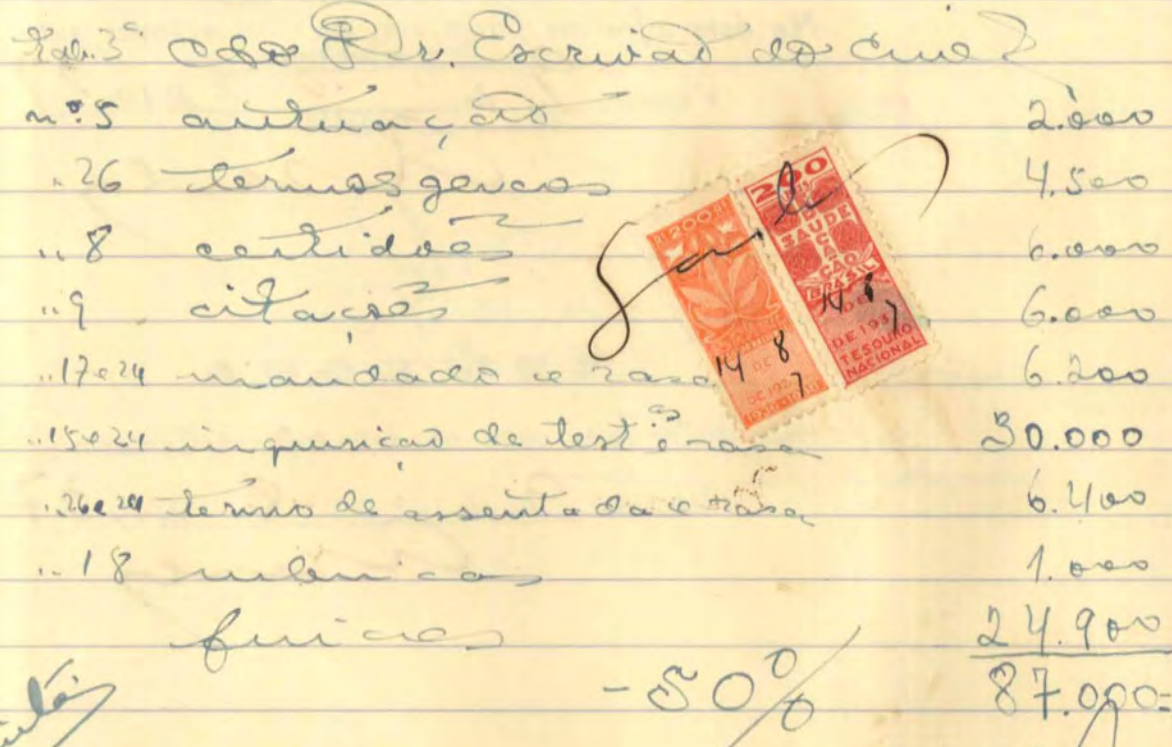 Tab. 3ª ao Dr. Escrivão do
nº. 5 autuação 2.000
" 26 termos geraes 4.500
" 8 certidões 6.000
" 9 citações 6.000
" 17 e 24 mandado e rasa 6.200
" 15 e 24 inquirição de test.as e rasa 30.000
" 26 e 24 termo de assentada e rasa 6.400
" 18 rubricas 1.000
24.900
-50% 87.000=
200 RÉIS
EDUCAÇÃO
SAUDE
BRASIL
14 8 7
DE
DE 193
TESOURO
NACIONAL
200
14 8 7
DE
DE 192